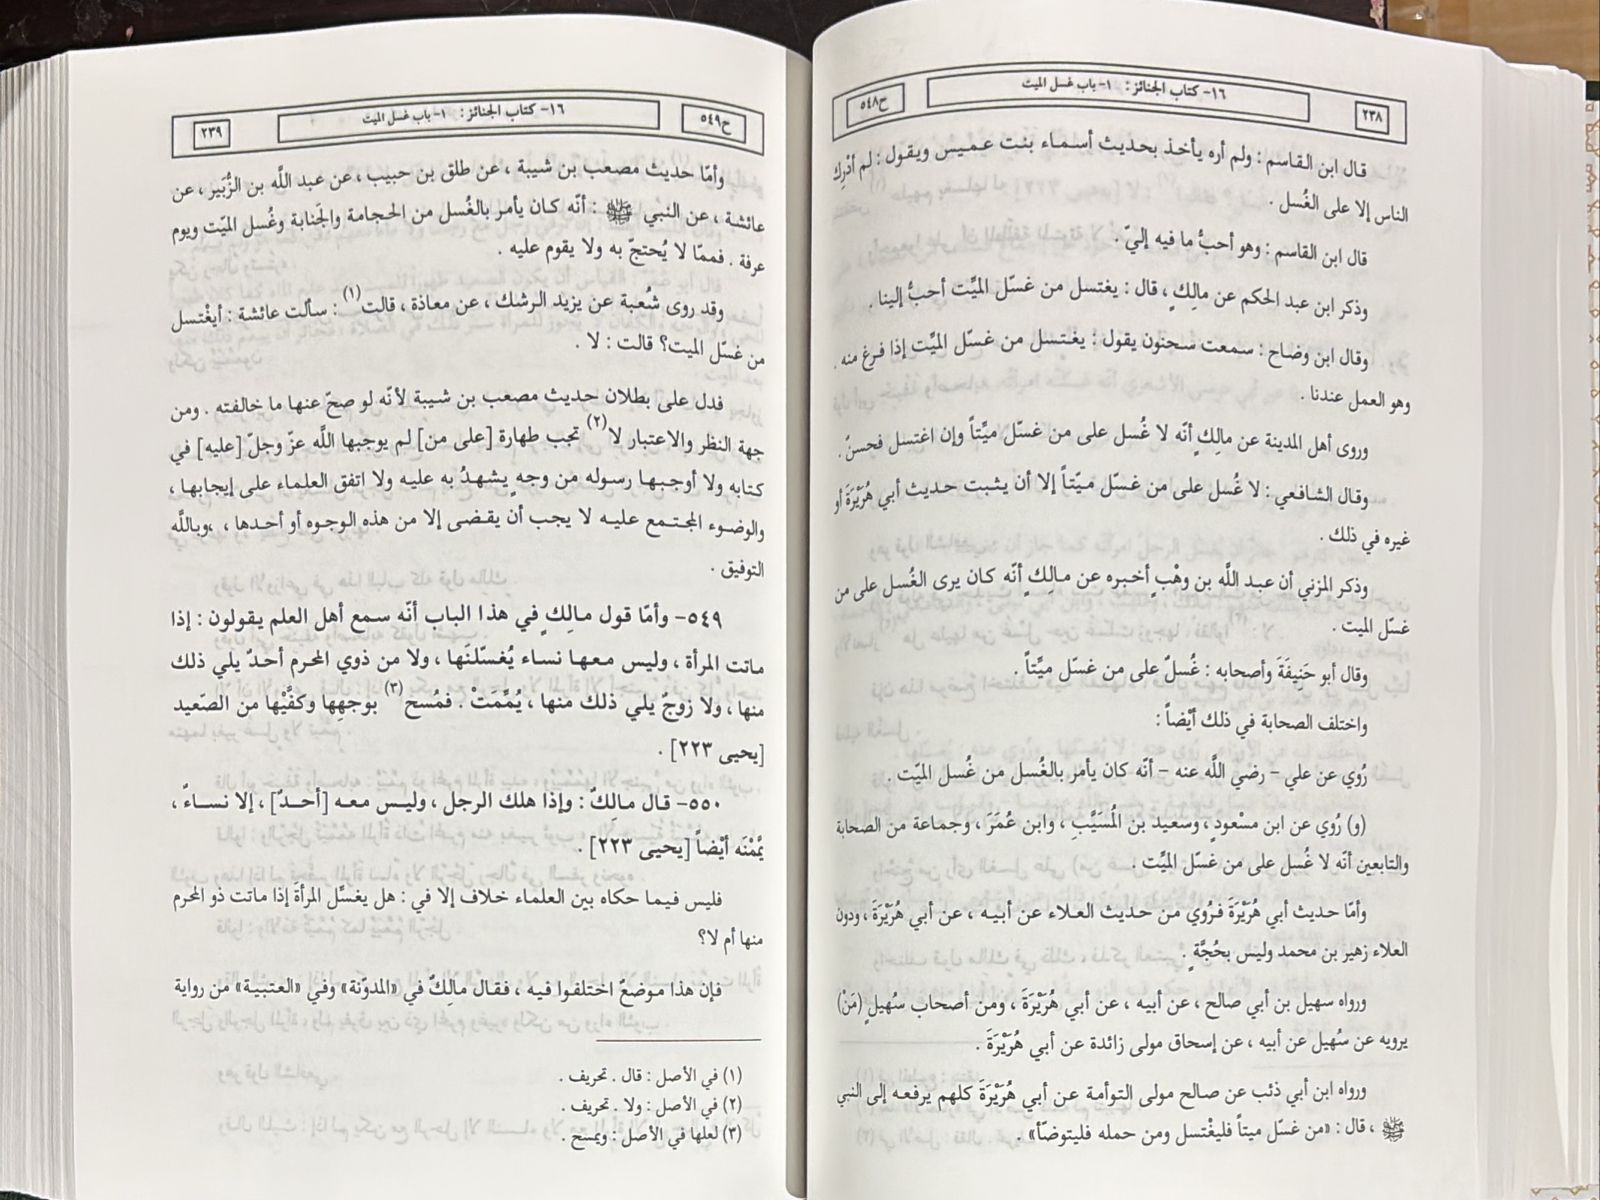 ٢٣٨
١٦- كتاب الجنائز : ١- باب غسل الميت
ح٥٤٨
قال ابن القاسم : ولم أره يأخذ بحديث أسماء بنت عميس ويقول : لم أدْرِك
الناس إلا على الغُسل .
قال ابن القاسم : وهو أحبُّ ما فيه إليّ .
وذكر ابن عبد الحكم عن مالِكٍ ، قال : يغتسل من غسّل الميِّت أحبُّ إلينا .
وقال ابن وضاح : سمعت سحنون يقول : يغتسل من غسّل الميِّت إذا فرغ منه .
وهو العمل عندنا .
وروى أهل المدينة عن مالِكٍ أنّه لا غُسل على من غسّل ميِّتاً وإن اغتسل فحسنٌ .
وقال الشافعي : لا غُسل على من غسّل ميّتاً إلا أن يثبت حديث أبي هُرَيْرَةَ أو
غيره في ذلك .
وذكر المزني أن عبد اللَّه بن وهْبٍ أخبره عن مالِكٍ أنّه كان يرى الغُسل على من
غسّل الميت .
وقال أبو حَنِيفَةَ وأصحابه : غُسلٌ على من غسّل ميِّتاً .
واختلف الصحابة في ذلك أيْضاً :
رُوي عن علي – رضي اللَّه عنه – أنّه كان يأمر بالغُسل من غُسل الميّت .
(و) رُوي عن ابن مسْعودٍ ، وسعيد بن المُسَيَّبِ ، وابن عُمَرَ ، وجماعة من الصحابة
والتابعين أنّه لا غُسل على من غسّل الميِّت .
وأمّا حديث أبي هُرَيْرَةَ فرُوي من حديث العلاء عن أبيه ، عن أبي هُرَيْرَةَ ، ودون
العلاء زهير بن محمد وليس بحُجَّةٍ .
ورواه سهيل بن أبي صالح ، عن أبيه ، عن أبي هُرَيْرَةَ ، ومن أصحاب سُهيلٍ (مَنْ)
يرويه عن سُهيل عن أبيه ، عن إسحاق مولى زائدة عن أبي هُرَيْرَةَ .
ورواه ابن أبي ذئب عن صالح مولى التوأمة عن أبي هُرَيْرَةَ كلهم يرفعه إلى النبي
ﷺ ، قال : «من غسّل ميتاً فليغْتسل ومن حمله فليتوضّأ» .
ح٥٤٩
١٦- كتاب الجنائز : ١- باب غسل الميت
٢٣٩
وأمّا حديث مصعب بن شيبة ، عن طلق بن حبيب ، عن عبد اللَّه بن الزُّبَير ، عن
عائشة ، عن النبي ﷺ : أنّه كان يأمر بالغُسل من الحجامة والجَنابة وغُسل الميّت ويوم
عرفة . فممّا لا يُحتجّ به ولا يقوم عليه .
وقد روى شُعبة عن يزيد الرشك ، عن معاذة ، قالت(١) : سألت عائشة : أيغْتسل
من غسّل الميت؟ قالت : لا .
فدل على بطلان حديث مصعب بن شيبة لأنّه لو صحّ عنها ما خالفته . ومن
جهة النظر والاعتبار لا(٢) تجب طهارة [على من] لم يوجبها اللَّه عزّ وجلّ [عليه] في
كتابه ولا أوجبها رسوله من وجهٍ يشهدُ به عليه ولا اتفق العلماء على إيجابها ،
والوضوء المجتمع عليه لا يجب أن يقضى إلا من هذه الوجوه أو أحدها ، ،وباللَّه
التوفيق .
٥٤٩- وأمّا قول مالِكٍ في هذا الباب أنّه سمع أهل العلم يقولون : إذا
ماتت المرأة ، وليس معها نساء يُغسّلنَها ، ولا من ذوي المحرم أحدٌ يلي ذلك
منها ، ولا زوجٌ يلي ذلك منها ، يُمِّمَتْ . فمُسح(٣) بوجهِها وكفَّيْها من الصّعيد
[يحيى ٢٢٣] .
٥٥٠- قال مالِكٌ : وإذا هلك الرجل ، وليس معه [أحدٌ] ، إلا نساءٌ ،
يمَّمْنَه أيْضاً [يحيى ٢٢٣] .
فليس فيما حكاه بين العلماء خلاف إلا في : هل يغسِّل المرأةَ إذا ماتت ذو المحرم
منها أم لا؟
فإن هذا موضعٌ اختلفوا فيه ، فقال مالِكٌ في «المدوّنة» وفي «العتبية» من رواية
(١) في الأصل : قال . تحريف .
(٢) في الأصل : ولا . تحريف .
(٣) لعلها في الأصل : ويمسح .